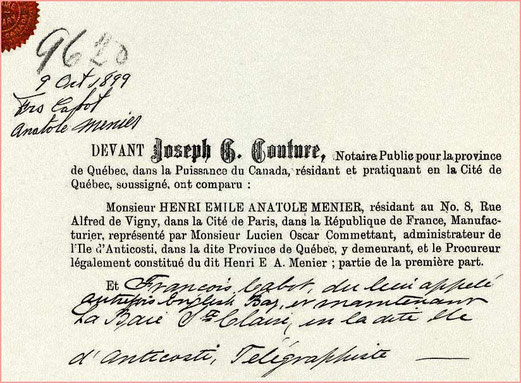 9620
9 Oct 1899
Frs Cabot
Anatole Menier
DEVANT Joseph G. Couture, Notaire Public pour la province
de Québec, dans la Puissance du Canada, résidant et pratiquant en la Cité de
Québec, soussigné, ont comparu :
Monsieur HENRI EMILE ANATOLE MENIER, résidant au No. 8, Rue
Alfred de Vigny, dans la Cité de Paris, dans la République de France, Manufac-
turier, représenté par Monsieur Lucien Oscar Commettant, administrateur de
l'Ile d'Anticosti, dans la dite Province de Québec, y demeurant, et le Procureur
légalement constitué du dit Henri E A. Menier ; partie de la première part.
Et François Cabot, du lieu appelé
autrefois English Bay, et maintenant
La Baie Ste Claire, en la dite Ile
d'Anticosti, Télégraphiste